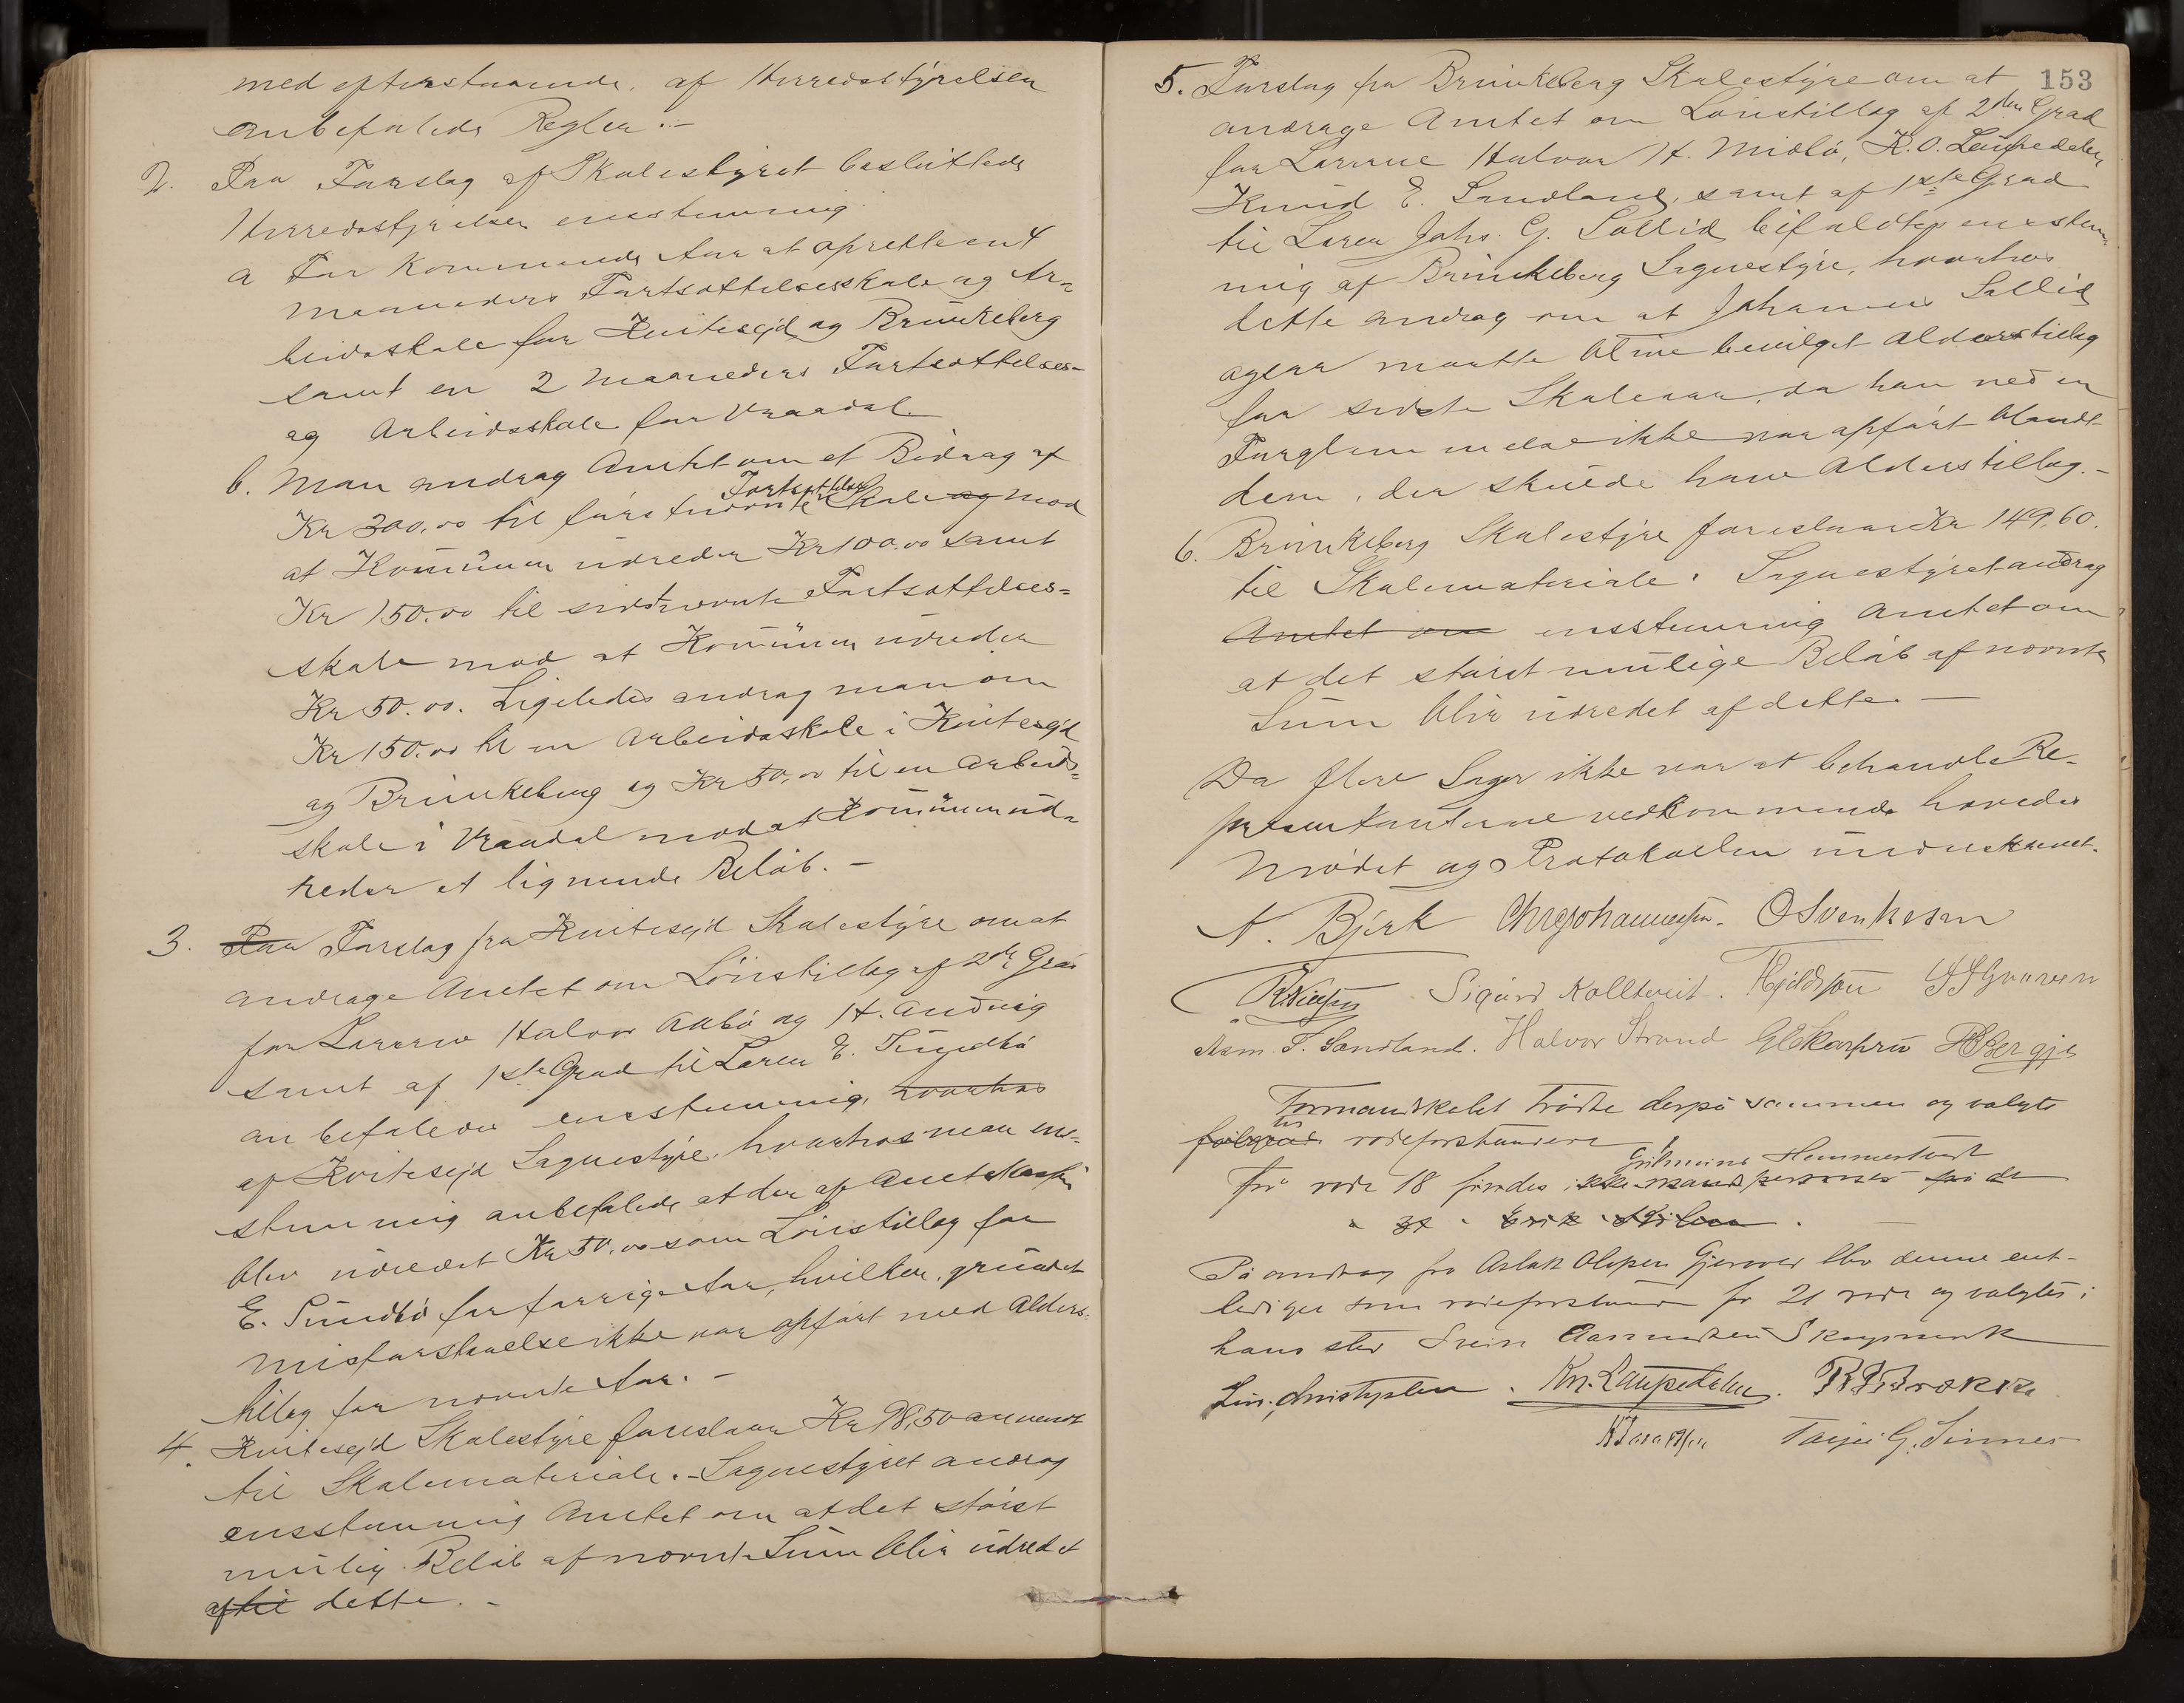 med efterstaaende, af Herredsstyrelsen
anbefalede Regler:-
2. Paa Forslag af Skolestyret besluttede
Herredsstyrelsen enstemmig:
a For kommende Aar at oprette en 4
Maaneders Fortsættelsesskole og Ar=
beidsskole for Kvitesejd og Brunkeberg
samt en 2 Maaneders Fortsættelses-
og Arbeidsskole for Vraadal
b. Man androg Amtet om et Bidrag af
Kr 300,00 til først nævnte Fortsættelses Skole og mod
at Kommunen udreder Kr 100.00 samt
Kr 150.00 til sidstnævnte Fortsættelses=
skole mod at Kommunen udreder
Kr 50.00. Ligeledes androg man om
Kr 150.00 til en Arbeidsskole i Kvitesejd
og Brunkeberg og Kr 50,00 til en Arbeids=
skole i Vraadal mod at Kommunen ud=
reder et lignende Beløb. -
3. Paa Forslag fra Kvitesejd Skolestyre om at
andrage Amtet om Lønstillæg af 2den Grad
for Lærerne Halvor Aabø og H. Andvig
samt af 1ste Grad til Lærer E. Sundbø
anbefaledes enstemmig, hvorhos
af Kvitesejd Sognestyre, hvorhos man en=
stemmig anbefalede at der af Amtskassen
blev udredet Kr 50,00 som Lønstillæg for
E. Sundbø for forrige Aar, hvilken, grundet
Misforstaaelse ikke var opført med Alders-
tillæg for nævnte Aar. -
4. Kvitesejd Skolestyre foreslaar Kr 98,50 anvendt
til Skolemateriale. - Sognestyret androg
enstemmig Amtet om at det størst
mulig Beløb af nævnte Sum blir udredet
af til dette. -
153
5. Forslag fra Brunkeberg Skolestyre om at
andrage Amtet om Lønstillæg af 2den Grad
for Lærerne Halvor H. Midbø, K.O. Laupedalen
Knud E. Sandland, samt af 1ste Grad
til Lærer Johs. G. Sollid bifaldtes enstem-
mig af Brunkeberg Sognestyre, hvorhos
dette androg om at Johannes Sollid
ogsaa maatte blive bevilget Alderstillæg
for sidste Skoleaar, da han ved en
Forglemmelse ikke var opført blandt
dem, der skulde have Alderstillæg. -
6. Brunkeberg Skolestyre foreslaar Kr 149,60.
til Skolemateriale. Sognestyret androg
Amtet om enstemmig Amtet om
at det størst mulige Beløb af nævnte
Sum blir udredet af dette. -
Da flere Sager ikke var at behandle Re-
præsentanterne vedkommende hævedes
Mødet og Protokollen underskrevet.
A. Bjørk Chr Johannessen. O Svenkesen
R. Nilssen Sigurd Kolltveit. T Kjeldsen
Asm. T. Sandland. Halvor Strand Bergje
Formandskabet trådte derpå sammen og valgte
følgende til rodeforstandere
for rode 18 findes ikke mandspersoner fra de Hemmestveit
" " Erik
På andrag fra Aslak Olsen Gjerover blev denne ent-
lediget som rodeforstander for 21 rode og valgtes i
hans sted Svein Aasmundsen Skaugmark
Kn. Laupedalen. Tarjei G. Sinnes